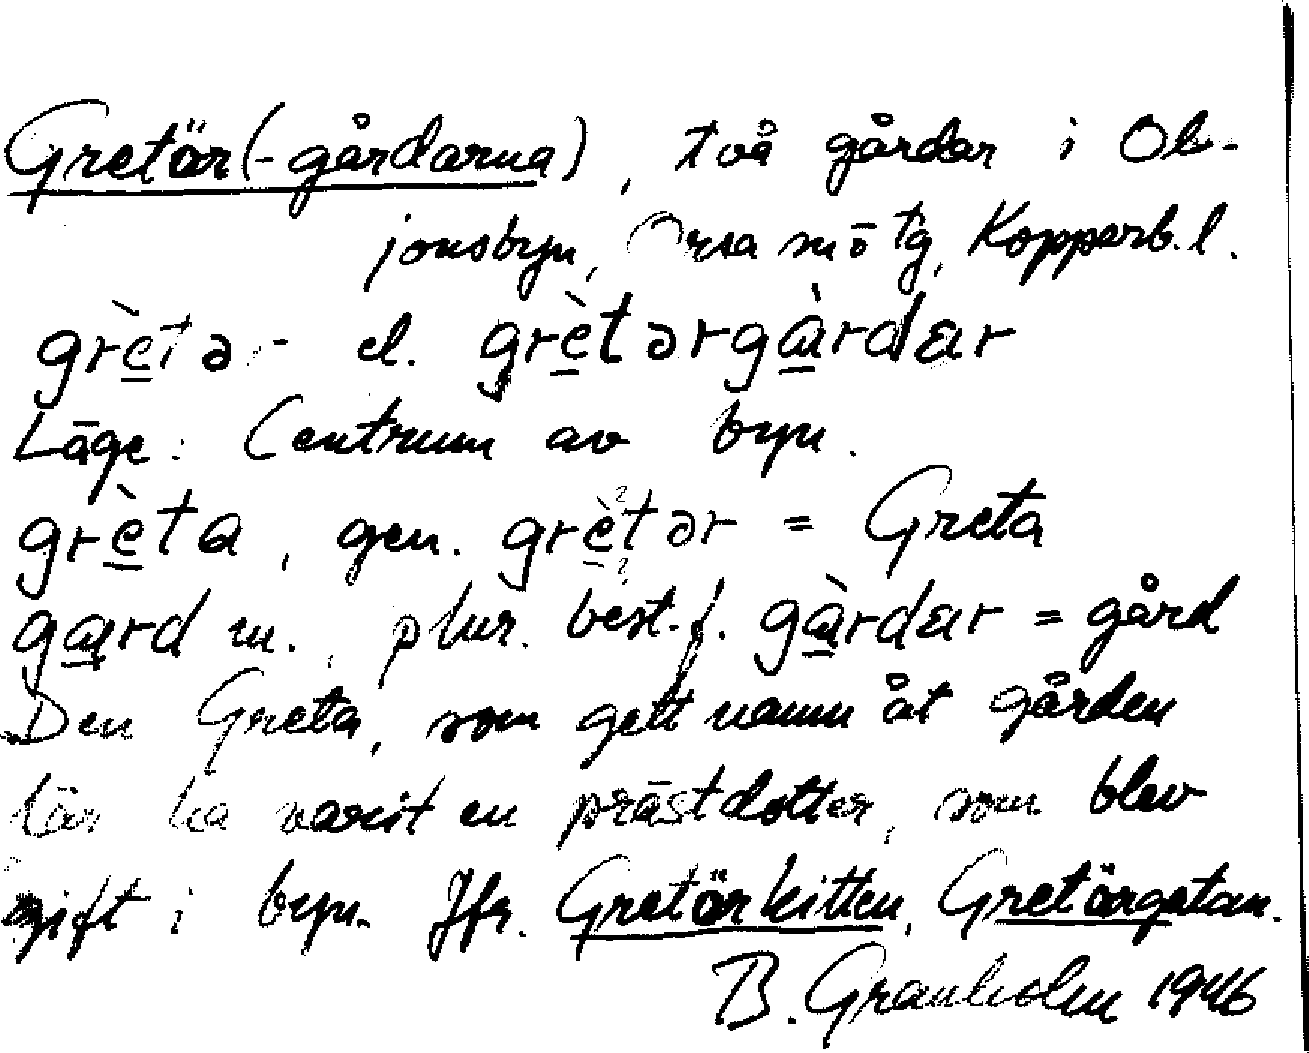 Gretör(-gårdarna), två gårdar i Ol-
jonsbyn, Orsa sn o tg, Kopparb. l.
grètər- el. grètərgàrdar
Läge: Centrum av byn.
grèta, gen. grètər = Greta
gard m., plur. best. f. gàrdar = gård
Den Greta, som gett namn åt gården
lär ha varit en prästdotter, som blev
gift i byn. Jfr. Gretörkitten, Gretörgatan.
B. Granholm 1946